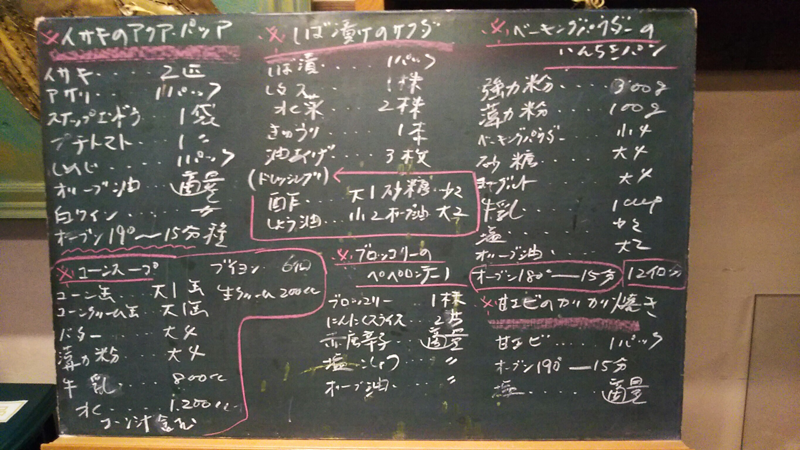 ※イサキのアクアパッツア
イサキ‥‥‥2匹
アサリ‥‥‥1パック
スナップエンドウ‥1袋
プチトマト‥‥1〃
しめじ‥‥‥1パック
オリーブ油‥‥適量
白ワイン‥‥〃
オーブン190°〜15分
※コーンスープ
ブイヨン
コーン缶‥‥大1缶
生クリーム200cc
コーンクリーム缶‥大1缶
バター‥‥大4
薄力粉‥‥大4
牛乳‥‥800cc
水‥‥1.200cc
コーン汁
※しば漬けのサラダ
しば漬‥‥‥1パック
レタス‥‥‥1株
水菜‥‥‥2株
きゅうり‥‥‥1本
油あげ‥‥‥3枚
(ドレッシング)
酢‥‥大1 砂糖‥小2
しょう油‥‥小2 オリーブ油 大2
※ブロッコリーの
ペペロンチーノ
ブロッコリー‥‥1株
にんにくスライス‥2片
赤唐辛子‥‥適量
塩‥こしょう‥〃
オリーブ油‥‥〃
※ベーキングパウダーの
いんちきパン
強力粉‥‥300g
薄力粉‥‥100g
ベーキングパウダー‥小4
砂糖‥‥大4
ヨーグルト‥‥大4
牛乳‥‥1cup
塩‥‥小2
オリーブ油‥‥大2
オーブン180°―15分
12個分
※甘エビのカリカリ焼き
甘エビ‥‥1パック
オーブン190°―15分
塩‥‥‥適量